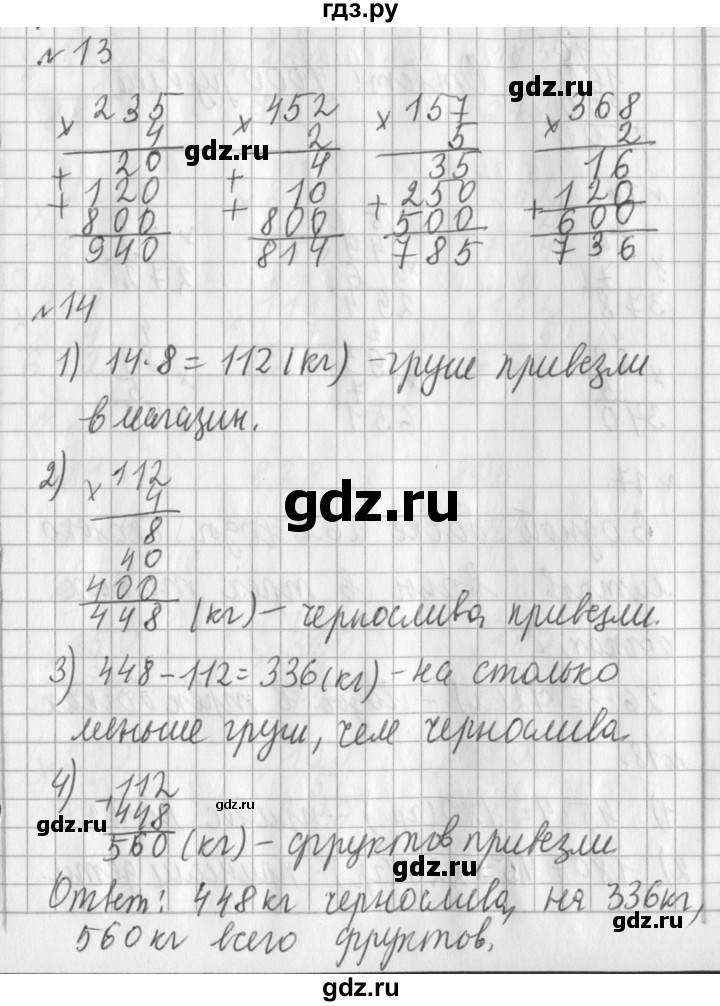 гдз.ру
№13
235 452 157 368
× 4 × 2 × 5 × 2
20 4 35 16
+ 120 + 10 + 250 + 120
+ 800 + 800 500 600
940 814 785 736
№14
1) 14·8=112(кг) - груш привезли
в магазин.
2) 112
× 4
8
40
400
448 (кг) - чернослива привезли.
3) 448-112=336(кг) - на столько
меньше груш, чем чернослива.
4) 112
+ 448
560 (кг) - фруктов привезли
Ответ: 448кг чернослива, на 336кг,
560кг всего фруктов.
gdz.ru
gdz.ru
gdz.ru
gdz.ru
gdz.ru
gdz.ru
gdz.ru